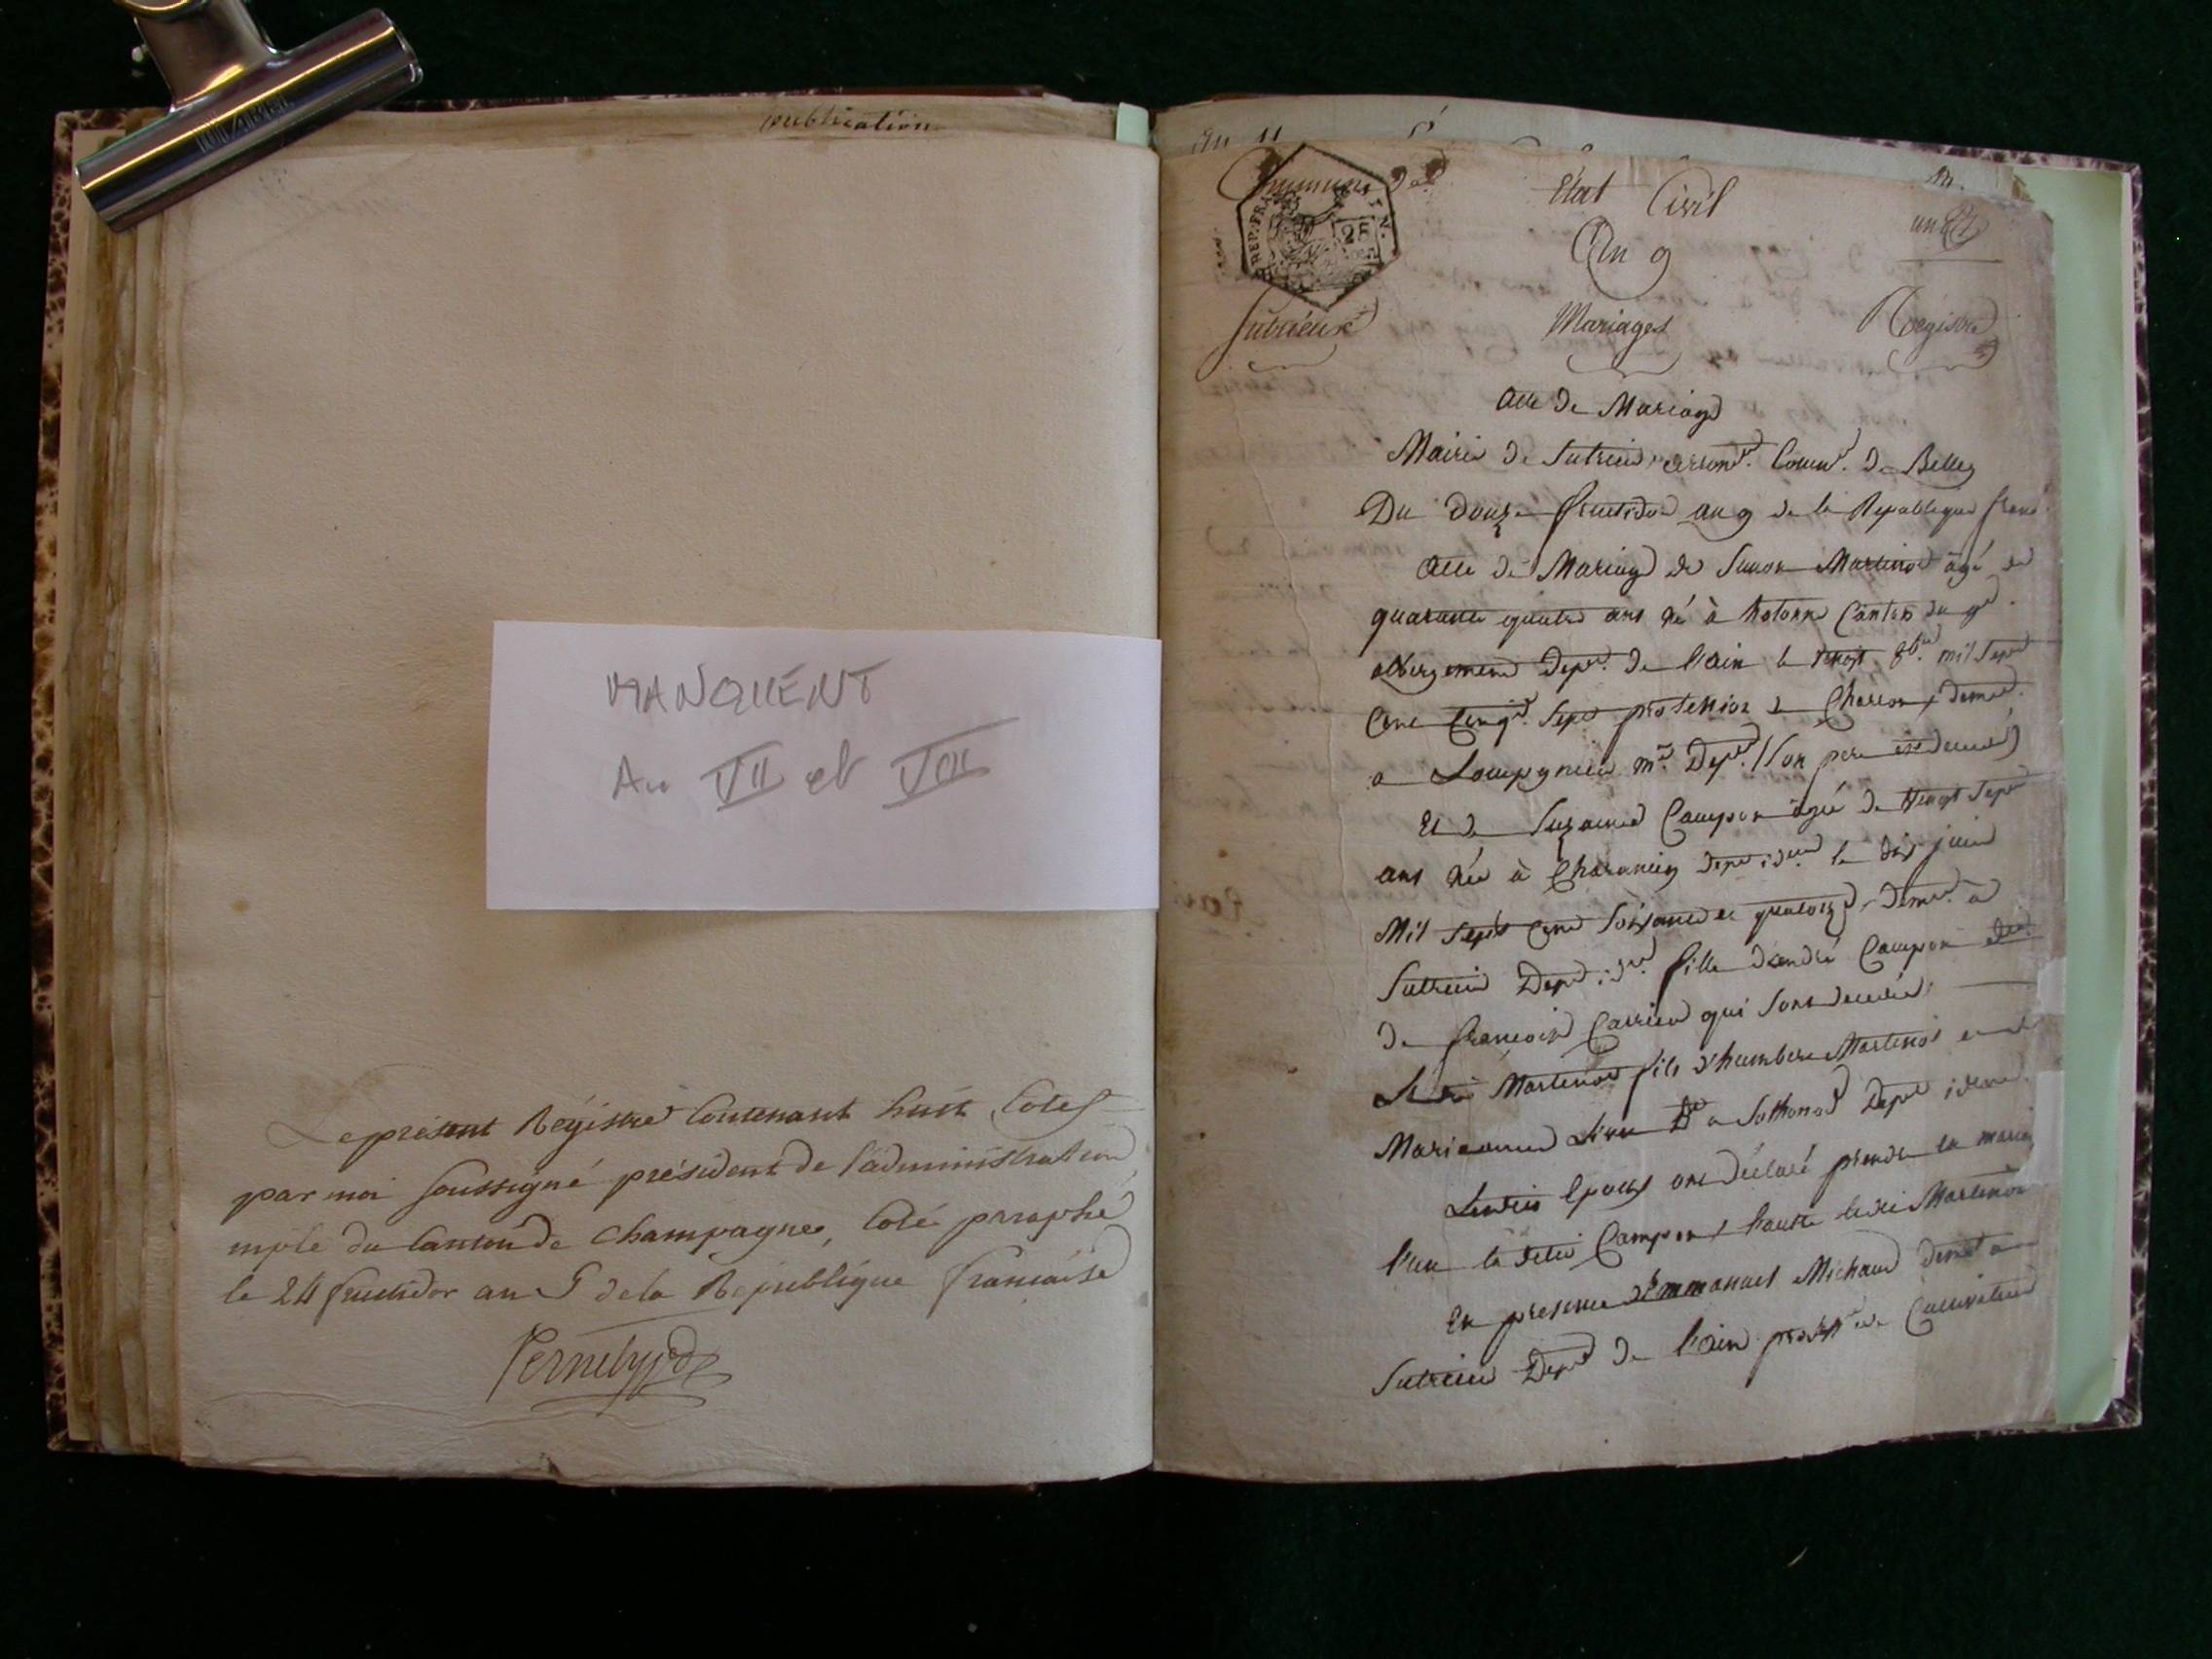 publication
MANQUENT
An VII et VIII
Le présent Régistre Contenant huit Cotes
par moi soussigné président de l'administration
mple du Canton de Champagne, Coté paraphé
le 24 fructidor an 5 de la République française
an 11
Commune de
Etat Civil
REP. FRA
25
An 9
Sutrieux
Mariages
Régistre
Acte de Mariage
Mairie de Sutrieu arrondt. Commt. de Belley
Du douze fructidor an 9 de la Republique franc
Acte de Mariage de Simon Martinod âgé de
quarante quatre ans né à hotonne Canton du gd
abergement Dept. de l'ain le vingt 8bre mil Sept
Cent Cinqte. Sept profession de Charron, demt.
a Lompgnieu me. Dept. (son pere est decedé)
Et de Suzanne Campon agée de vingt Sept
ans née à Charancin Dept idem le dix juin
Mil Sept Cent Soixante et quatorze, demt. à
Sutrieu Dept. idm. fille d'andré Campon et
de françoise Carrier qui sont decedés
Ledit Martinod fils d'humbert Martinod et de
Marieanne a Sothonod Dept idem
Lesdits Epoux ont déclaré prendre en mariage
l'un ladite Campon, l'autre ledit Martinod
En presence d'Emmanuel Michaud demt a
Sutrieu Dept de l'ain profession de Cultivateur